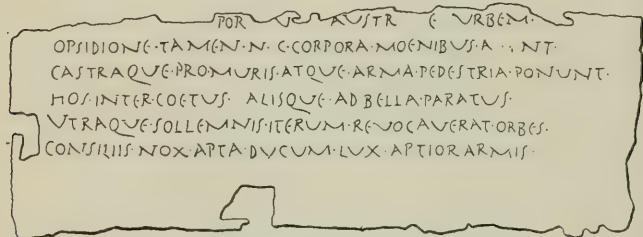 POR V AUSTR E VRBEM·
OPSIDIONE·TAMEN·N C·CORPORA·MOENIBUS·A NT·
CASTRAQUE·PRO·MURIS·ATQUE·ARMA·PEDESTRIA·PONUNT·
HOS·INTER·COETUS· ALISQUE·AD·BELLA·PARATUS·
UTRAQUE·SOLLEMNIS·ITERUM·REVOCAVERAT·ORBES·
CONSILIIS·NOX·APTA·DUCUM·LUX·APTIOR·ARMIS·